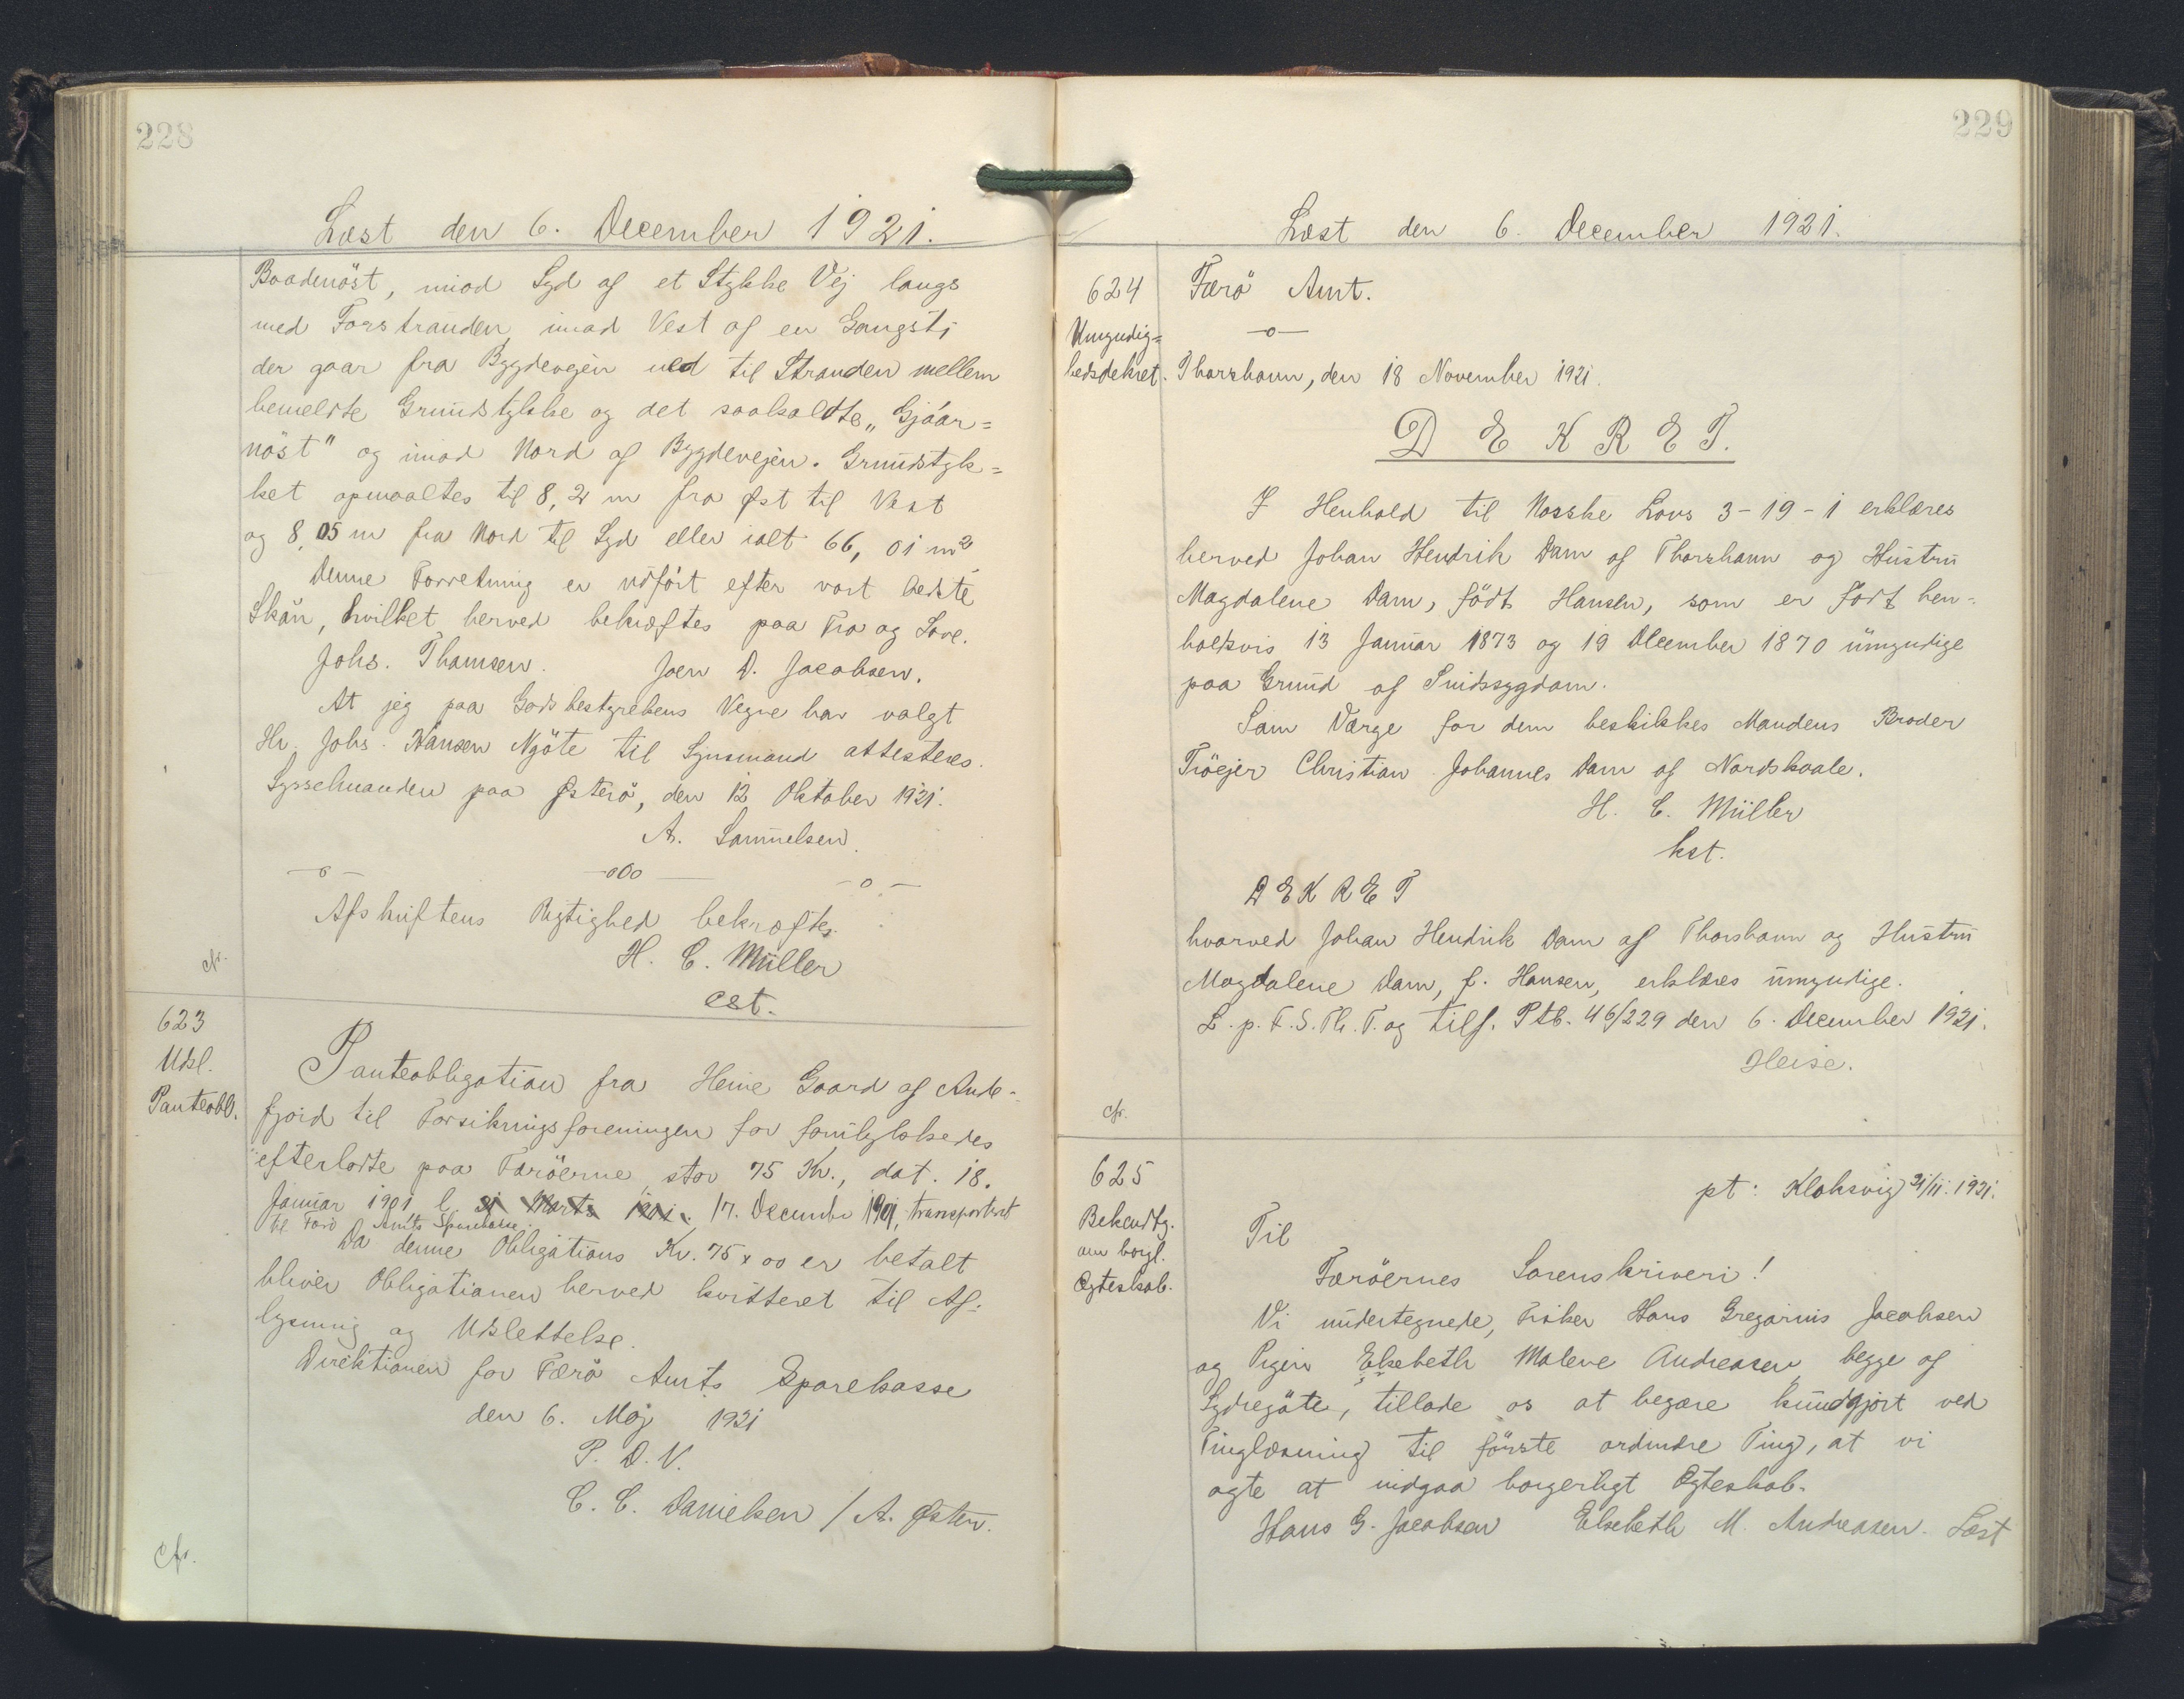 228
Læst den 6. December 1921.
Baadenöst, imod Syd af et Stykke Vej langs
med Forstranden, imod Vest af en Gangsti
der gaar fra Bygdevejen ned til Stranden mellem
bemeldte Grundstykke og det saakaldte „Gjáar=
nöst" og imod Nord af Bygdevejen. Grundstyk=
ket opmaaltes til 8,2 m fra Øst til Vest
og 8,05 m fra Nord til Syd eller ialt 66,01 m²
Denne Forretning er udfört efter vort bedste
Skön, hvilket herved bekræftes paa Tro og Love.
Johs. Thomsen. Joen D. Jacobsen.
At jeg paa Godsbestyrelsens Vegne har valgt
Hr. Johs. Hansen Ngöte til Synsmand attesteres.
Sysselmanden paa Østerö, den 12 Oktober 1921.
A. Samuelsen.
—o— —oOo— —o—
Afskriftens Rigtighed bekræftes.
H. C. Müller
cst.
623
Udsl.
Panteobl.
Panteobligation fra Heine Gaard af Ande=
fjord til Forsikringsforeningen for familyløkedes
efterladte paa Færöerne, stor 75 Kr., dat. 18.
Januar 1901 l. 21 Marts 1901. 17. Decembr 1901, transporteret
til Færö Amts Sparekasse.
Da denne Obligations Kr. 75 x 00 er betalt
bliver Obligationen herved kvitteret til Af=
lysning og Udslettelse.
Direktionen for Færö Amts Sparekasse
den 6. Maj 1921
P. D. V.
C. C. Danielsen / A. Østen.
229
Læst den 6. December 1921.
624
Umyndig=
hedsdekret.
Færö Amt.
—o—
Thorshavn, den 18 November 1921.
DEKRET.
I Henhold til Norske Lovs 3-19-1 erklæres
herved Johan Hendrik Dam af Thorshavn og Hustru
Magdalene Dam, födt Hansen, som er Födt hen=
holdsvis 13 Januar 1873 og 19 December 1870 umyndige
paa Grund af Sindssygdom.
Som Værge for dem beskikkes Mandens Broder
Tröejer Christian Johannes Dam af Nordskaale.
H. C. Müller
kst.
DEKRET
hvorved Johan Hendrik Dam af Thorshavn og Hustru
Magdalene Dam, f. Hansen, erklæres umyndige.
L. p. F. S. Th. T. og tilf. Ptb. 46/229 den 6. December 1921.
Heise.
625
Bekendtg.
om borgl.
Ægteskab.
pt: Klaksvig 21/11. 1921.
Til
Færöernes Sorenskriveri!
Vi undertegnede, Fisker Hans Gregorius Jacobsen
og Pigen Elsebeth Malene Andreasen, begge af
Sydregöte, tillade os at begære kundgjort ved
Tinglæsning til förste ordindre Ting, at vi
agte at indgaa borgerligt Ægteskab.
Hans G. Jacobsen Elsebeth M. Andreasen. Læst